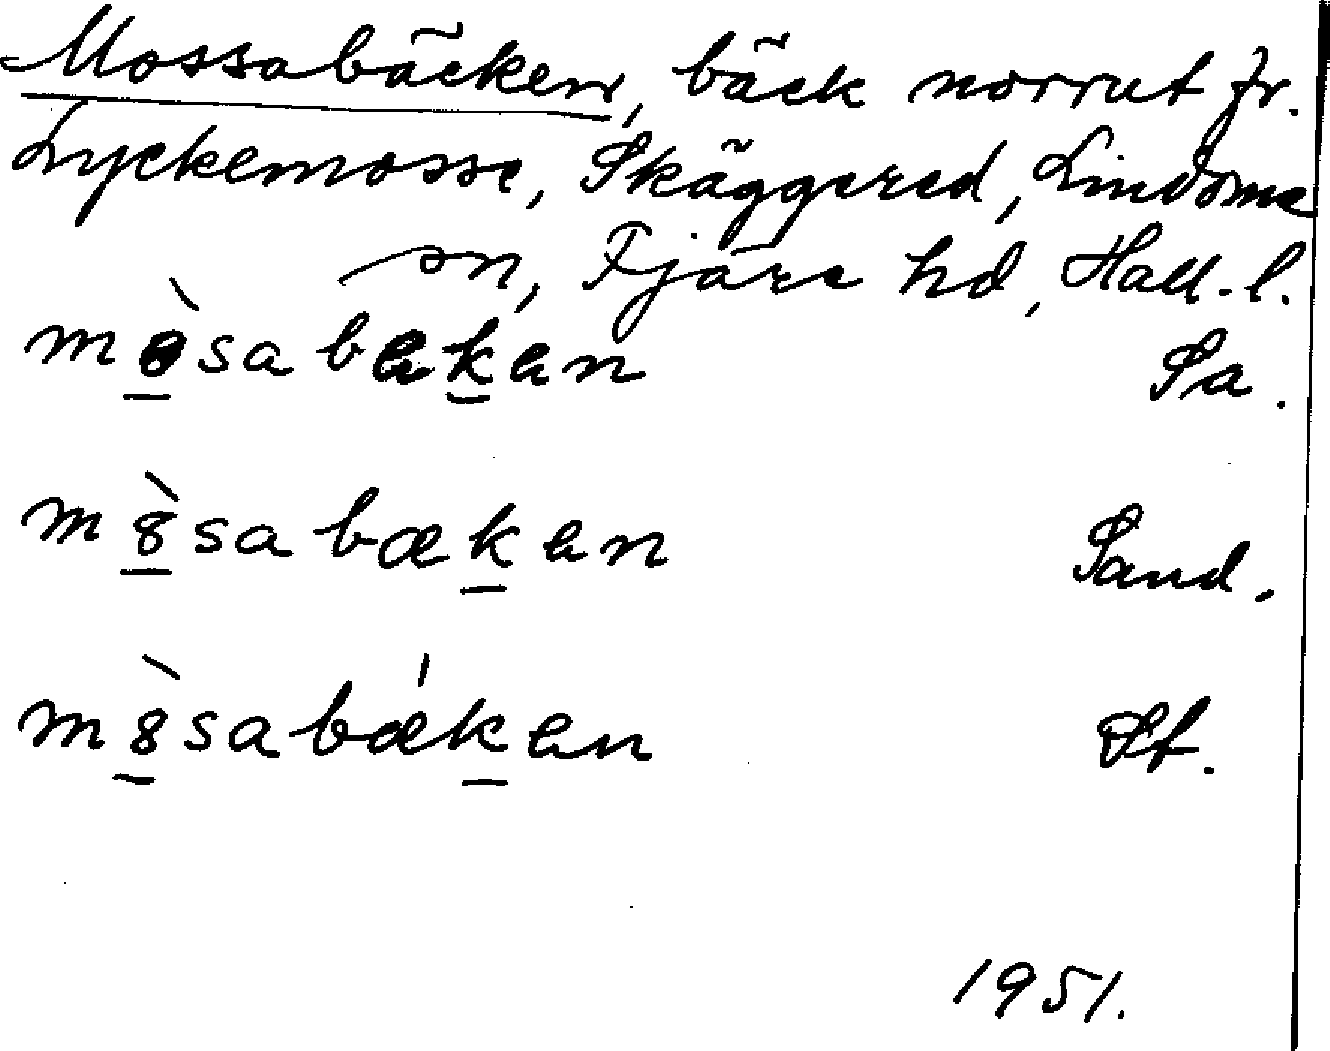 Mossabäcken, bäck norrut fr.
Lyckemosse, Skäggered, Lindome
sn, Fjäre hd, Hall. l.
mòsabækən Sa.
m8̀sabækən Sand.
m8̀sabǽkən Sf.
1951.